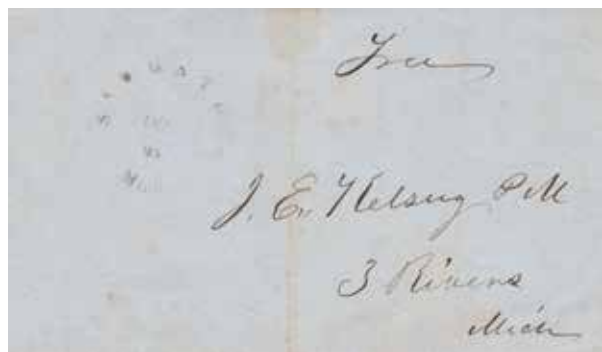 Free
J. E. Kelsey PM
3 Rivers
Mich